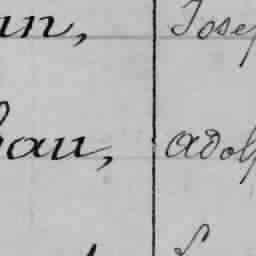 un, Josep
hau, Adolp